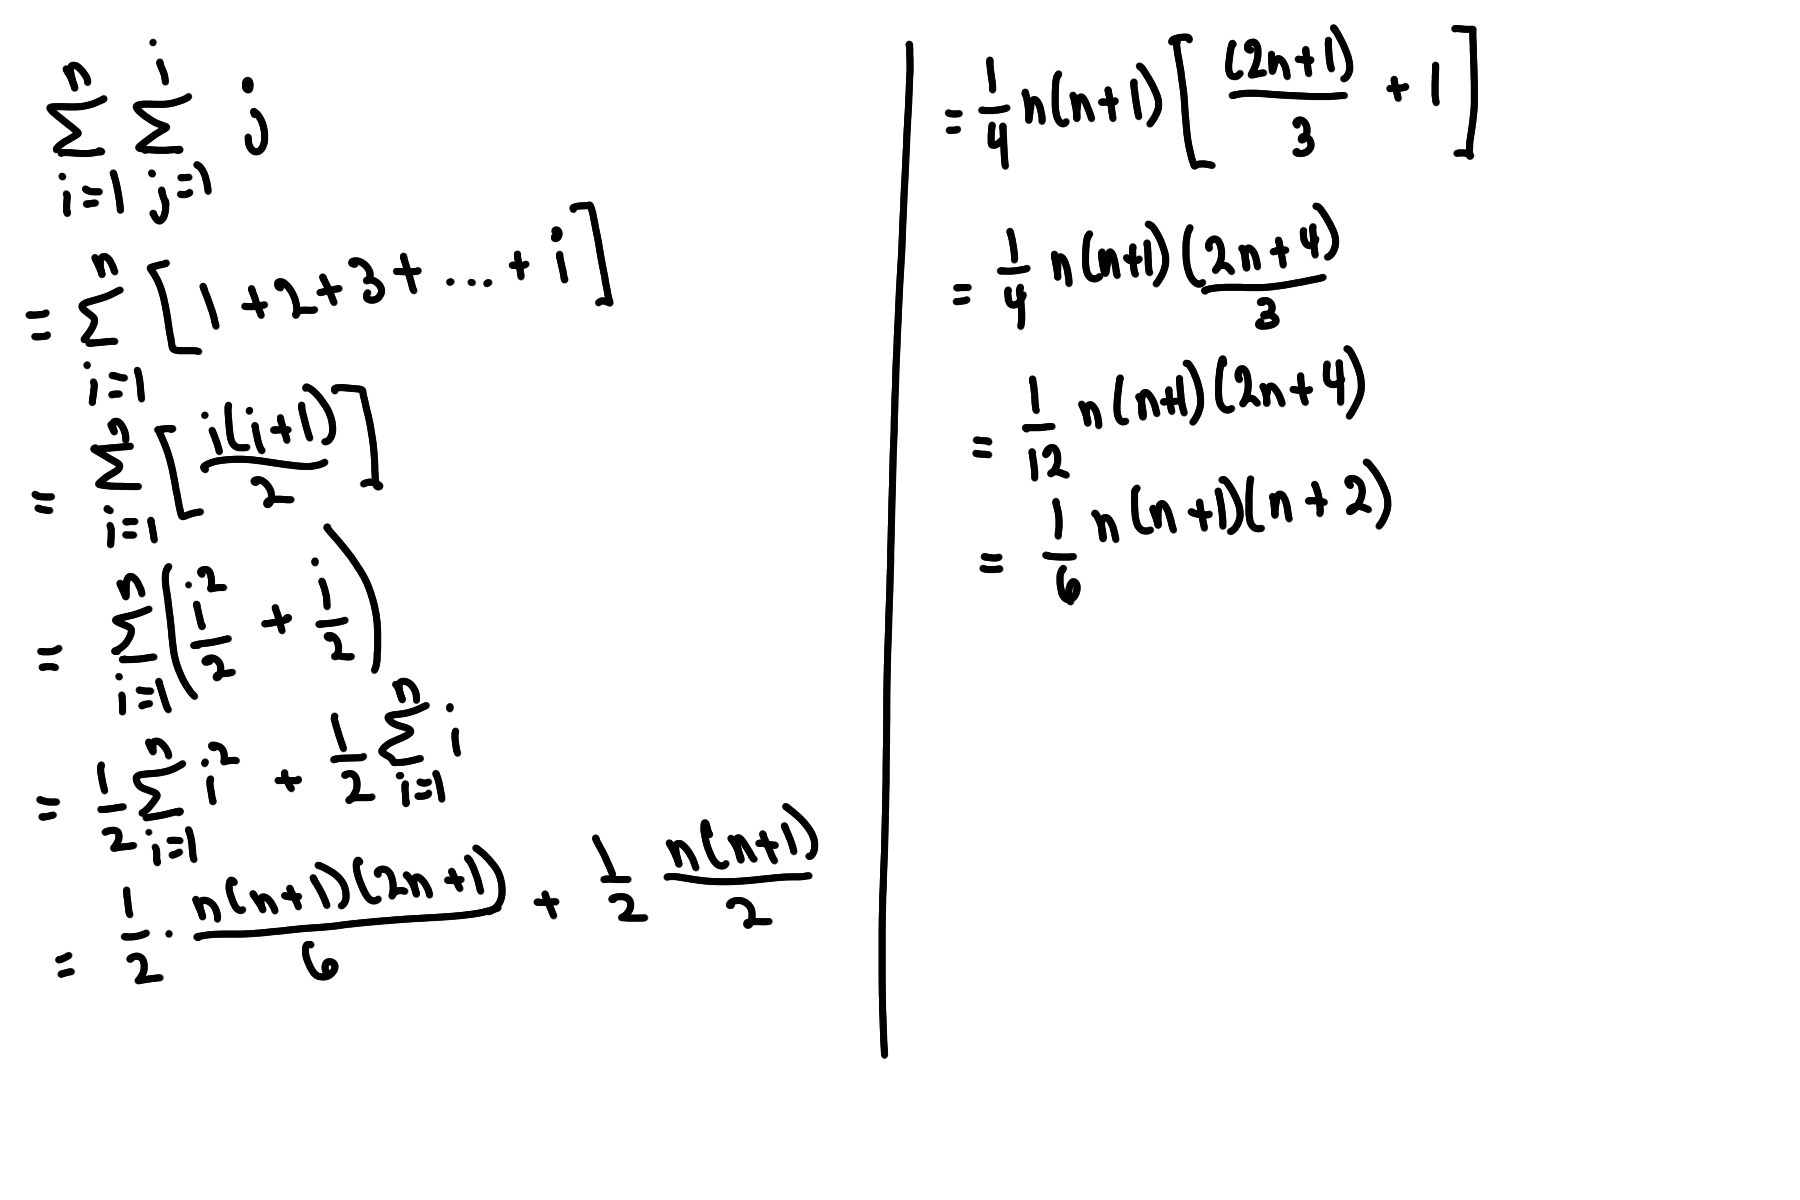 $\sum_{i=1}^{n} \sum_{j=1}^{i} j$
$= \sum_{i=1}^{n} [1 + 2 + 3 + \ldots + i]$
$= \sum_{i=1}^{n} \left[\frac{i(i+1)}{2}\right]$
$= \sum_{i=1}^{n} \left(\frac{i^2}{2} + \frac{i}{2}\right)$
$= \frac{1}{2} \sum_{i=1}^{n} i^2 + \frac{1}{2} \sum_{i=1}^{n} i$
$= \frac{1}{2} \cdot \frac{n(n+1)(2n+1)}{6} + \frac{1}{2} \frac{n(n+1)}{2}$
$= \frac{1}{4} n(n+1) \left[\frac{(2n+1)}{3} + 1\right]$
$= \frac{1}{4} n(n+1) \frac{(2n+4)}{3}$
$= \frac{1}{12} n(n+1)(2n+4)$
$= \frac{1}{6} n(n+1)(n+2)$